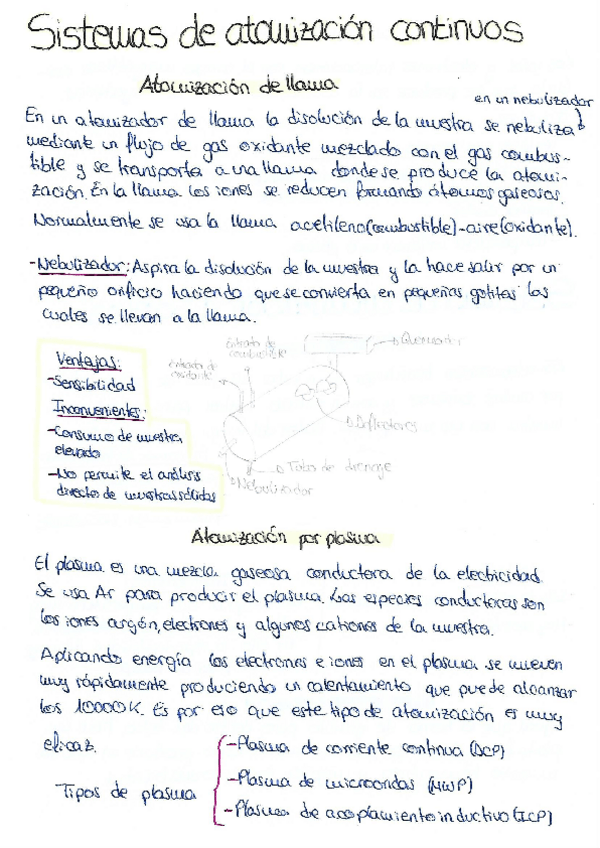 Sistemas de atomización continuos
Atomización de llama
en un nebulizador
En un atomizador de llama la disolución de la muestra se nebuliza
mediante un flujo de gas oxidante mezclado con el gas combus-
tible y se transporta a una llama donde se produce la atomi-
zación. En la llama los iones se reducen formando átomos gaseosos.
Normalmente se usa la llama acetileno(combustible)-aire(oxidante).
-Nebulizador: Aspira la disolución de la muestra y la hace salir por un
pequeño orificio haciendo que se convierta en pequeñas gotitas las
cuales se llevan a la llama.
Ventajas:
-Sensibilidad
Inconvenientes:
-Consumo de muestra
elevado
-No permite el análisis
directo de muestras sólidas
Entrada de
combustible
Entrada de
oxidante
Quemador
Deflectores
Tubo de drenaje
Nebulizador
Atomización por plasma
El plasma es una mezcla gaseosa conductora de la electricidad.
Se usa Ar para producir el plasma. Las especies conductoras son
los iones argón, electrones y algunos cationes de la muestra.
Aplicando energía los electrones e iones en el plasma se mueven
muy rápidamente produciendo un calentamiento que puede alcanzar
los 10000K. Es por eso que este tipo de atomización es muy
eficaz.
Tipos de plasma
-Plasma de corriente continua (DCP)
-Plasma de microondas (MWP)
-Plasma de acoplamiento inductivo (ICP)